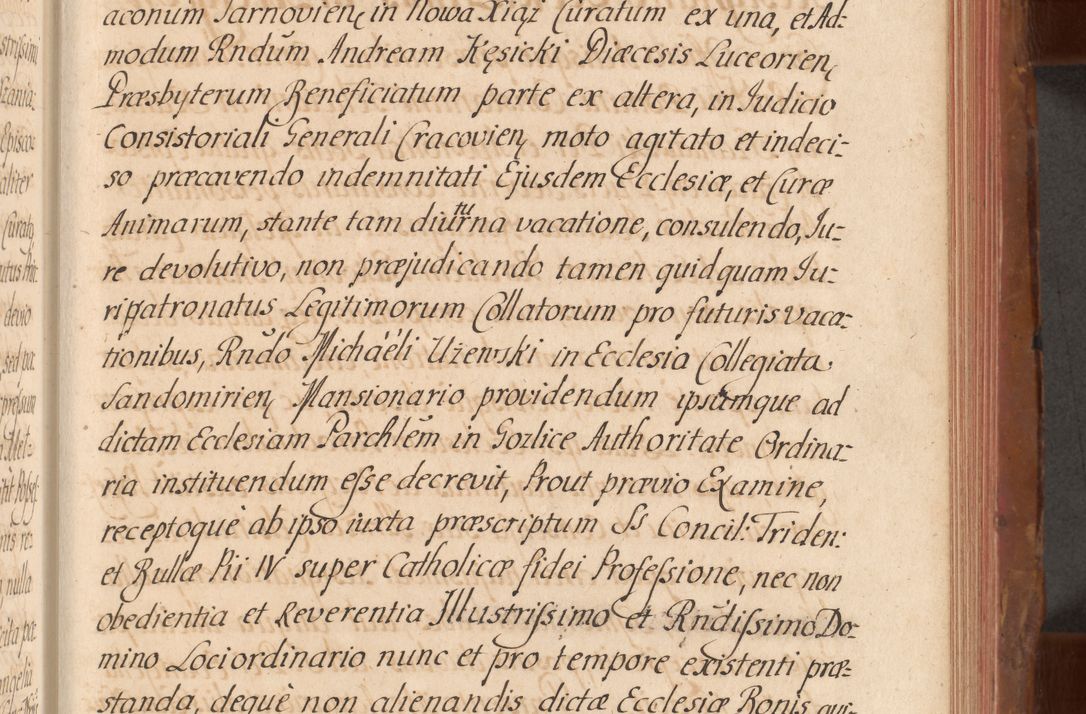 aconum Tarnovien, in Nowa Xiąż Curatum ex una, et Ad=
modum Rndum Andream Kęsicki Diæcesis Luceorien,
Præsbyterum Beneficiatum parte ex altera, in Iudicio
Consistoriali Generali Cracovien, moto agitato et indeci=
so præcavendo indemnitati Ejusdem Ecclesiæ, et Curæ
Animarum, stante tam diuturna vacatione, consulendo, Iu=
re devolutivo, non præjudicando tamen quidquam Iu=
ripatronatus Legitimorum Collatorum pro futuris vaca=
tionibus, Rndo Michaëli Użewski in Ecclesia Collegiata
Sandomirien, Mansionario providendum ipsumque ad
dictam Ecclesiam Parchlem in Gozlice Authoritate Ordina=
ria instituendum eſse decrevit, Prout prævio Examine,
receptoquè ab ipso iuxta præscriptum Ss Concil: Triden:
et Bullæ Pii IV super Catholicæ fidei Profeſsione, nec non
obedientia et Reverentia Illustriſsimo et Rndiſsimo Do=
mino Lociordinario nunc et pro tempore existenti præ=
standa, dequè non alienandis dictæ Ecclesiæ Bonis